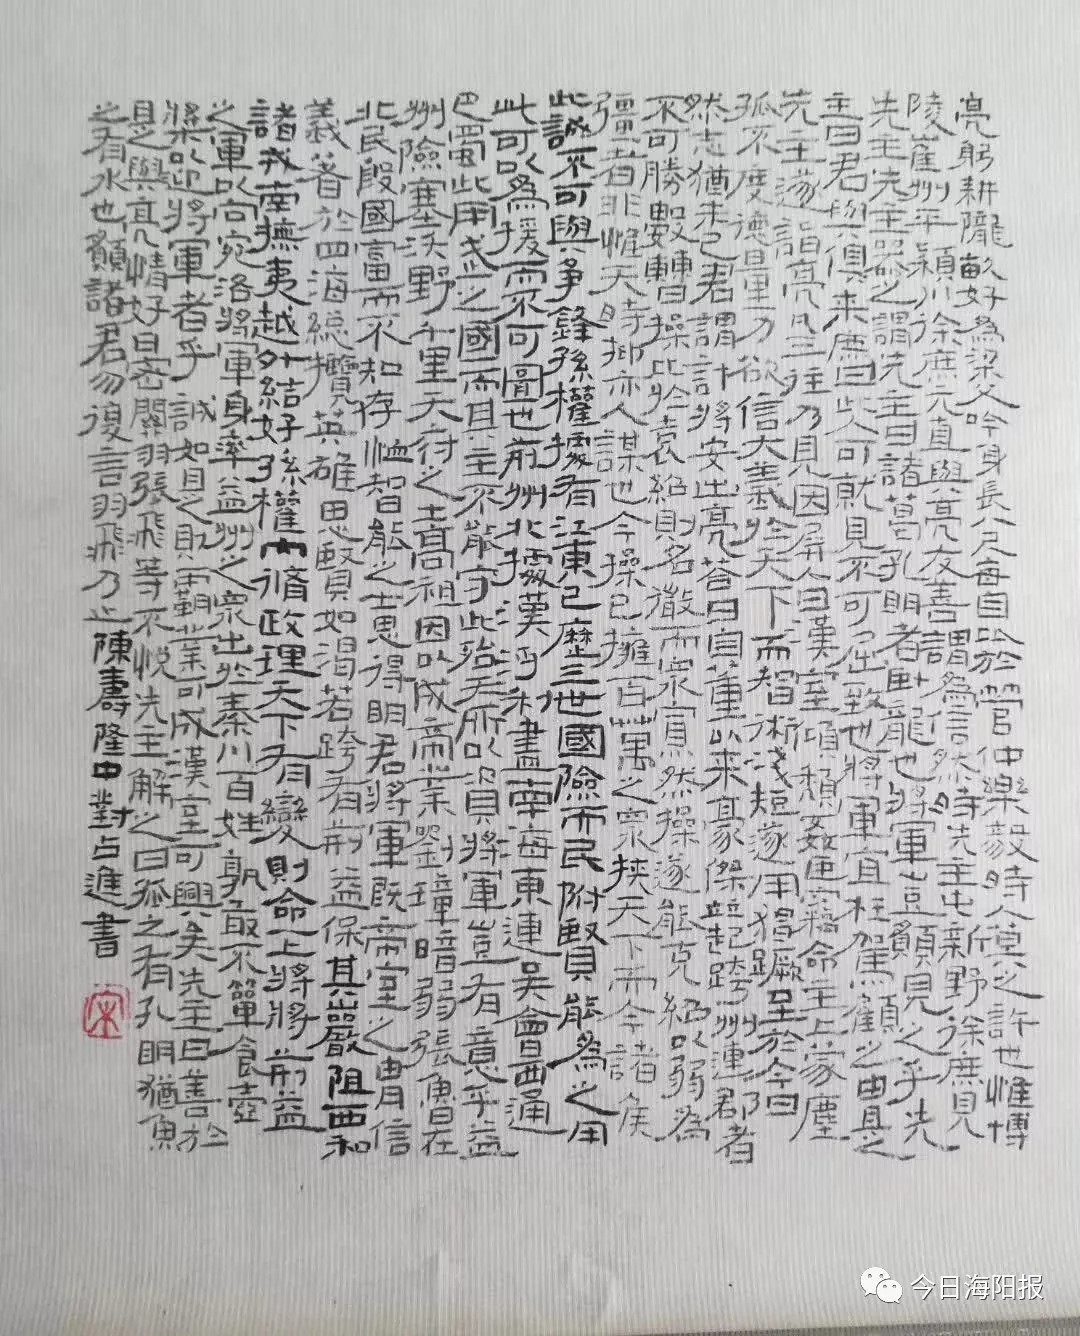 亮躬耕隴畝好為梁父吟身長八尺每自於管仲樂毅時人莫之許也惟博
陵崔州平潁川徐庶元直與亮友善謂為信然時先主屯新野徐庶見
先主先主器之謂先主曰諸葛孔明者臥龍也將軍豈願見之乎先
主曰君與俱來庶曰此人可就見不可屈致也將軍宜枉駕顧之由是
先主遂詣亮凡三往乃見因屏人曰漢室傾頹姦臣竊命主上蒙塵
孤不度德量力欲信大義於天下而智術淺短遂用猖蹶至於今日
然志猶未已君謂計將安出亮荅曰自董以來豪傑並起跨州連郡者
不可勝數曹操比於袁紹則名微而眾寡然操遂能克紹以弱為
彊者非惟天時抑亦人謀也今操已擁百萬之眾挾天下而令諸侯
此誠不可與爭鋒孫權據有江東已歷三世國險而民附賢能為之用
此可以為援而不可圖也荊州北據漢沔利盡南海東連吳會西通
巴蜀此用武之國而其主不能守此殆天所以資將軍豈有意乎益
州險塞沃野千里天府之土高祖因以成帝業劉璋暗弱張魯在
北民殷國富而不知存恤智能之士思得明君將軍既帝室之冑信
義著於四海總攬英雄思賢如渴若跨有荊益保其巖阻西和
諸戎南撫夷越外結好孫權內脩政理天下有變則命一上將將荊益
之軍以向宛洛將軍身率益州之眾出於秦川百姓孰敢不簞食壺
漿以迎將軍者乎誠如是則霸業可成漢室可興矣先主曰善於
是與亮情好日密關羽張飛等不悅先主解之曰孤之有孔明猶魚
之有水也願諸君勿復言羽飛乃止 陳壽隆中對占進書
宋
今日海阳报